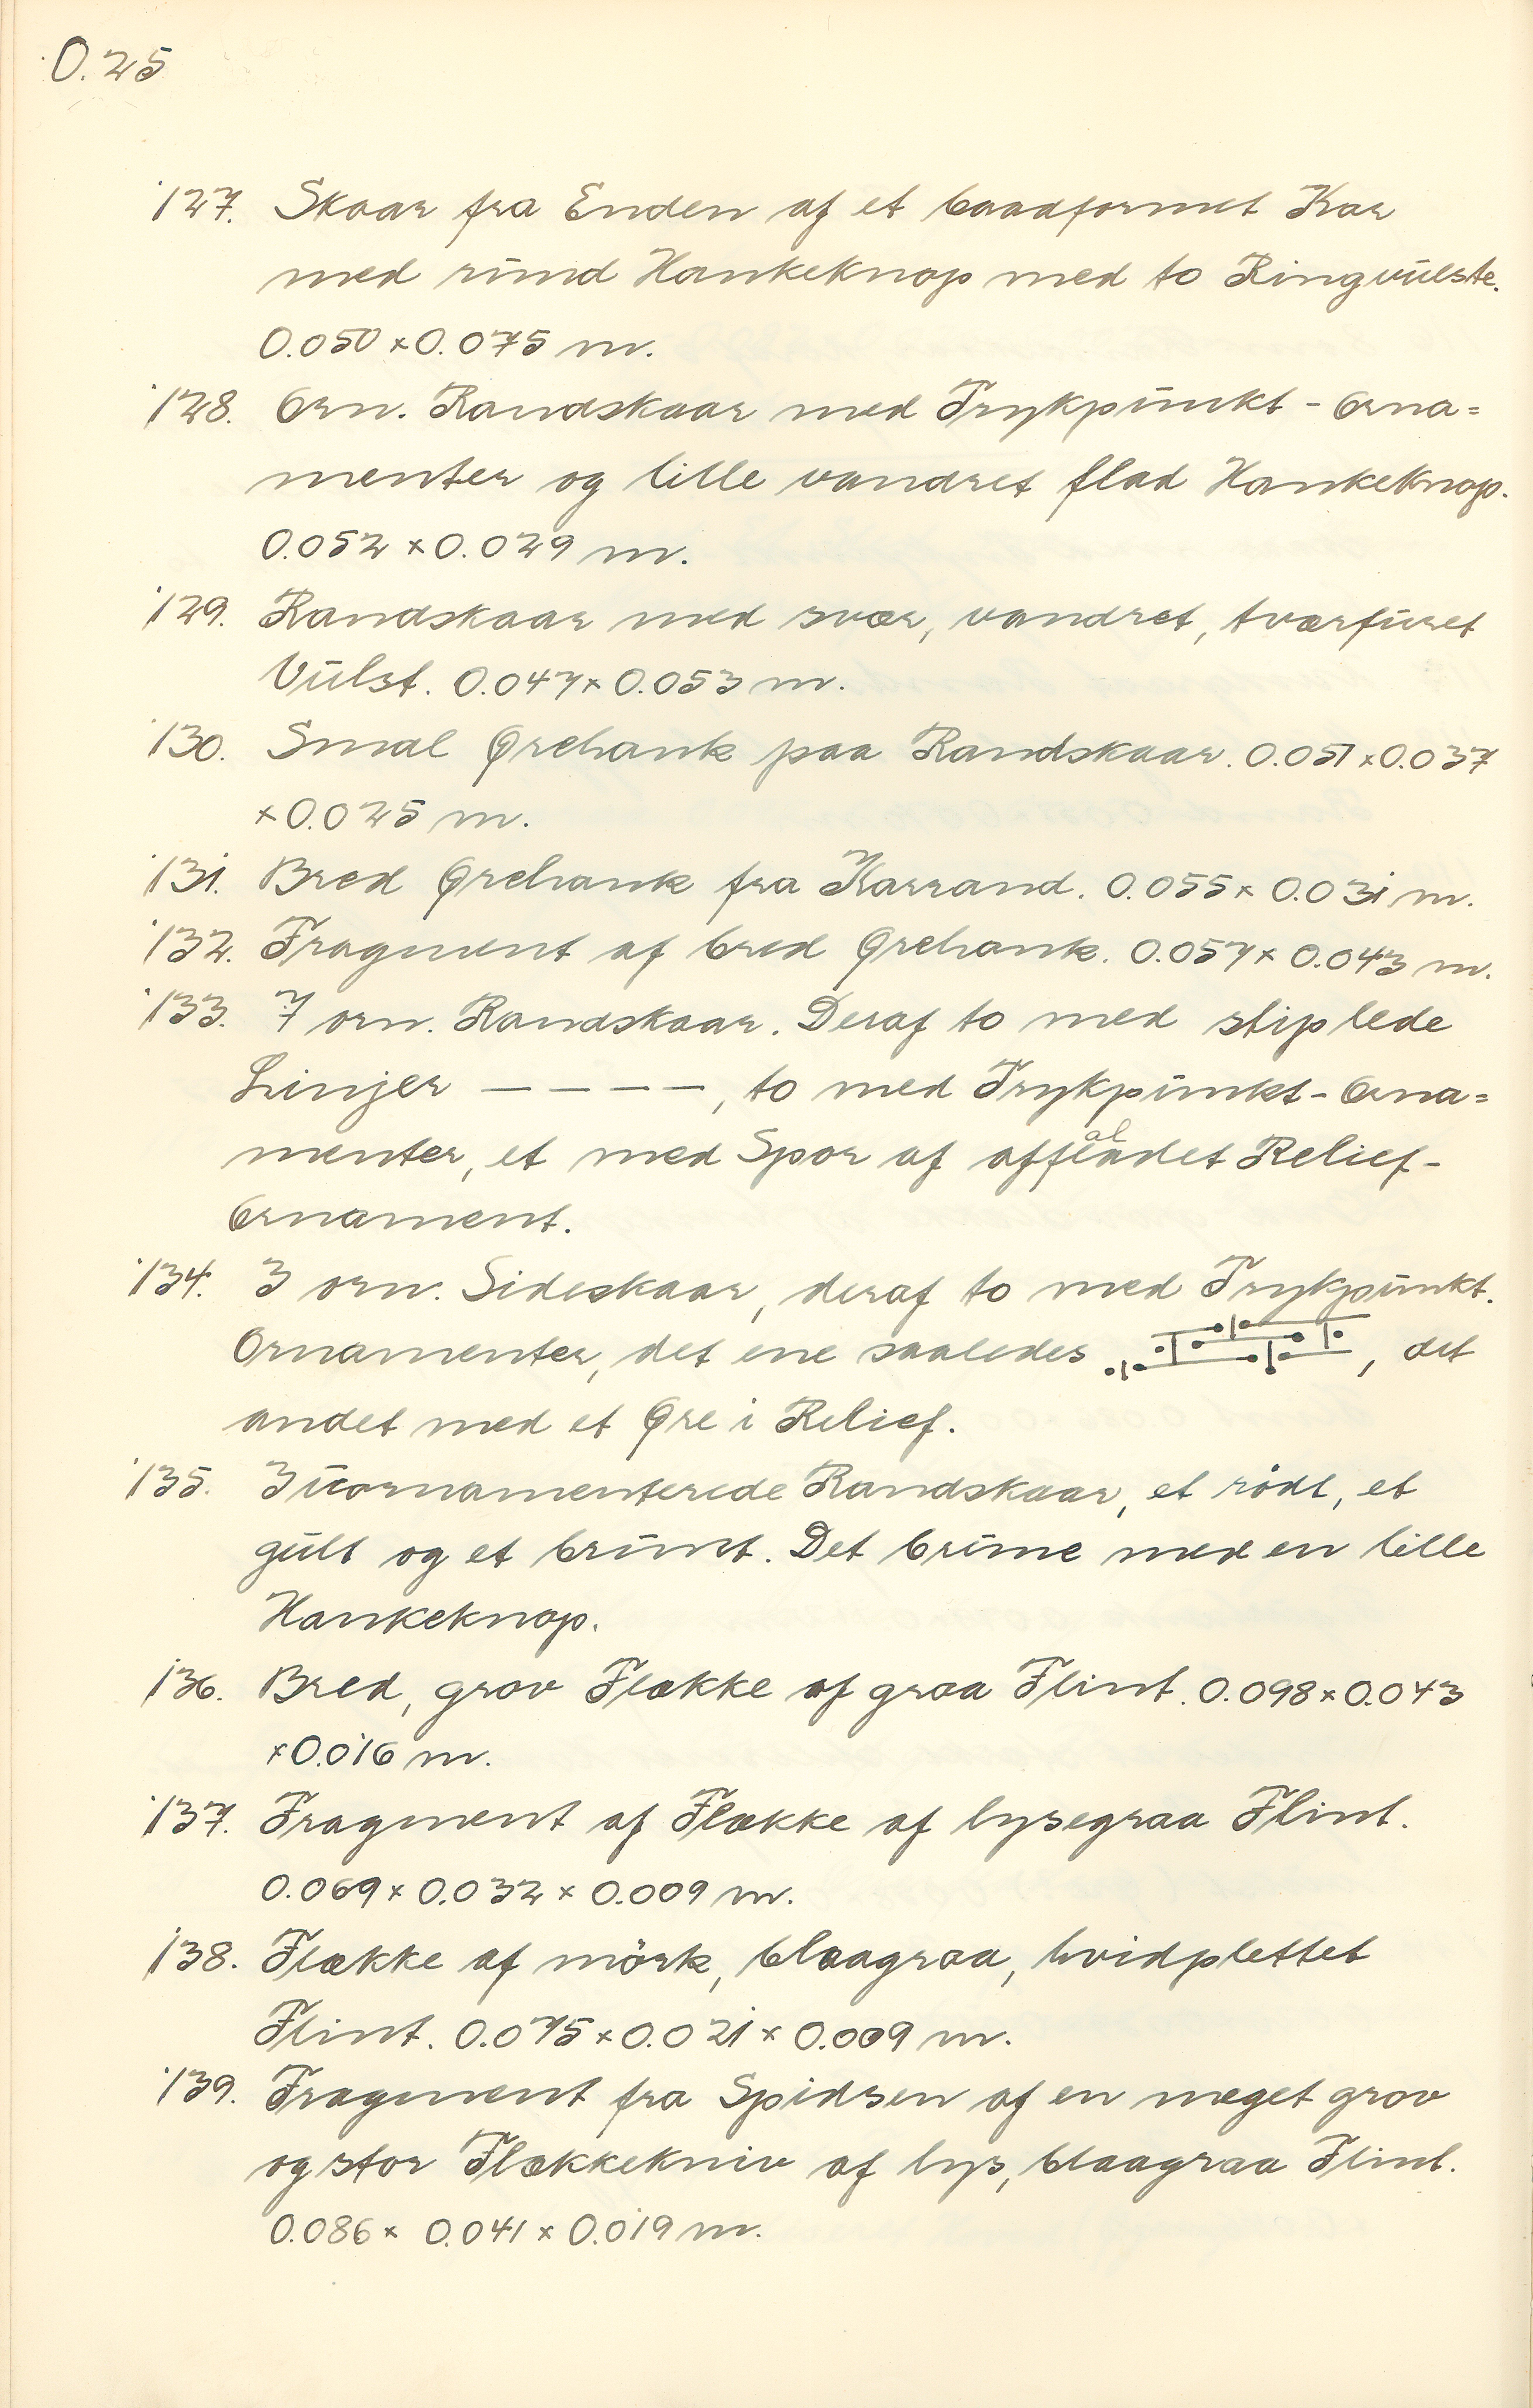 O.25
127. Skaar fra Enden af et baadformet Kar
med rund Hankeknop med to Ringvulste.
0.050 x 0.075 m.
128. Orn. Randskaar med Trykpunkt-Orna=
menter og lille vandret flad Hankeknop.
0.052 x 0.029 m.
129. Randskaar med svær, vandret, tværfuret
Vulst. 0.047 x 0.053 m.
130. Smal Ørehank paa Randskaar. 0.051 x 0.037
x 0.025 m.
131. Bred Ørehank fra Karrand. 0.055 x 0.031 m.
132. Fragment af bred Ørehank. 0.057 x 0.043 m.
133. 7 orn. Randskaar. Deraf to med stiplede
Linjer — — — —, to med Trykpunkt-Orna=
menter, et med Spor af affladet Relief-
Ornament.
134. 3 orn. Sideskaar, deraf to med Trykpunkt.
Ornamenter, det ene saaledes , det
andet med et Øre i Relief.
135. 3 uornamenterede Randskaar, et rødt, et
gult og et brunt. Det brune med en lille
Hankeknop.
136. Bred, grov Flække af graa Flint. 0.098 x 0.043
x 0.016 m.
137. Fragment af Flække af lysegraa Flint.
0.069 x 0.032 x 0.009 m.
138. Flække af mörk, blaagraa, hvidplettet
Flint. 0.075 x 0.021 x 0.009 m.
139. Fragment fra Spidsen af en meget grov
og stor Flækkekniv af lys, blaagraa Flint.
0.086 x 0.041 x 0.019 m.